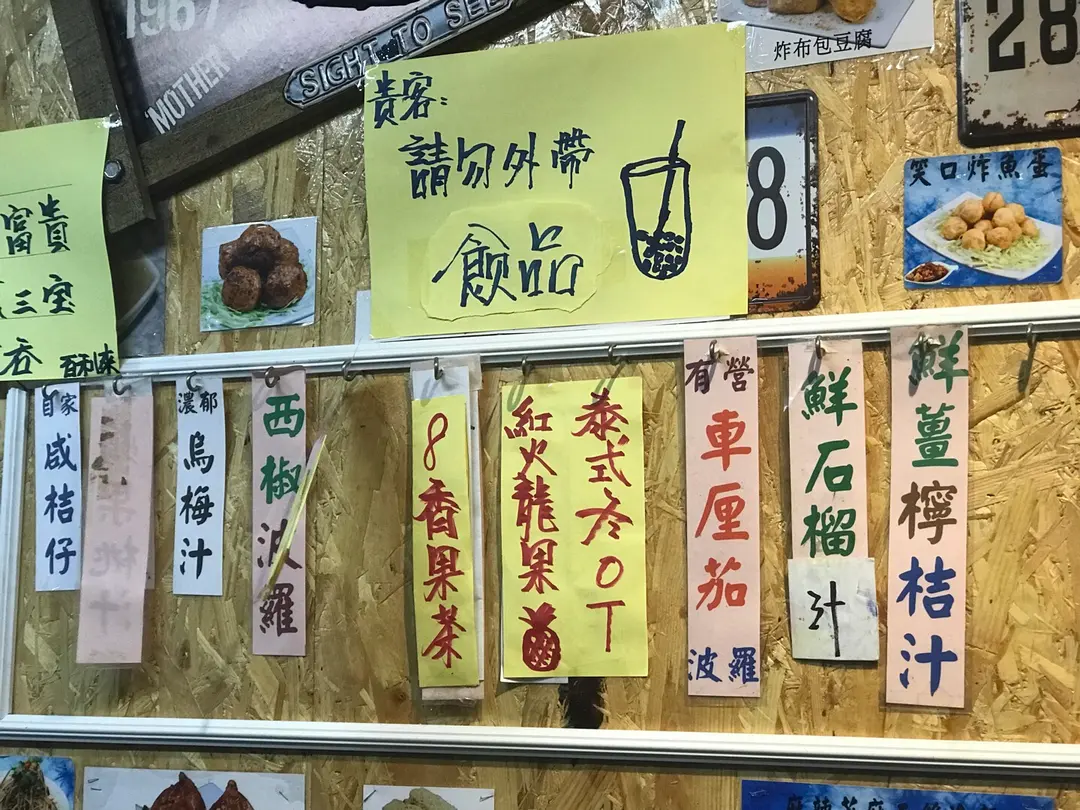 1967
"MOTHER
SIGHT TO SEE
炸布包豆腐
28
貴客:
請勿外帶
飲品
8
笑口炸魚蛋
富貴
三宝
百利来
自家
咸桔仔
濃郁
烏梅汁
西椒波羅
8香果茶
紅火龍果
泰式冬OT
有營
車厘茄
波羅
鮮石榴
汁
鮮薑檸桔汁